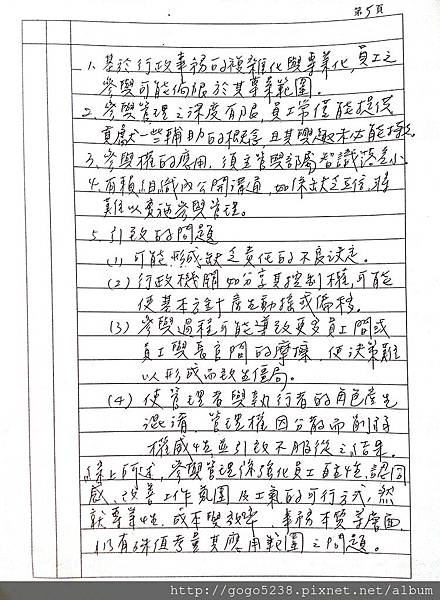 第5頁
1. 基於行政事務的複雜化與專業化,員工之
參與可能侷限於其專業範圍。
2. 參與管理之深度有限,員工常僅能提供
貢獻一些輔助的概念且其興趣未必能持久。
3. 參與權的應用,須主管與部屬智識落差小。
4. 有賴組織內公開溝通,如條缺乏互信將
難以實施參與管理。
5. 引致的問題
(1) 可能形成缺乏責任的不良決定。
(2) 行政機關如分享其控制權,可能
使基本方針產生動搖或偏移。
(3) 參與過程可能導致更多員工間或
員工與長官間的摩擦,使決策難
以形成而致生僵局。
(4) 使管理者與執行者的角色產生
混淆,管理權因分散而削弱
權威性並引致不服從之結果。
綜上所述,參與管理係強化員工自主性、認同
感、改善工作氣圍及士氣的可行方式,然
就專業性、成本與效率、事務本質等層面,
仍有 值考量其應用範圍之問題。
http://gogo5238.pixnet.net/album